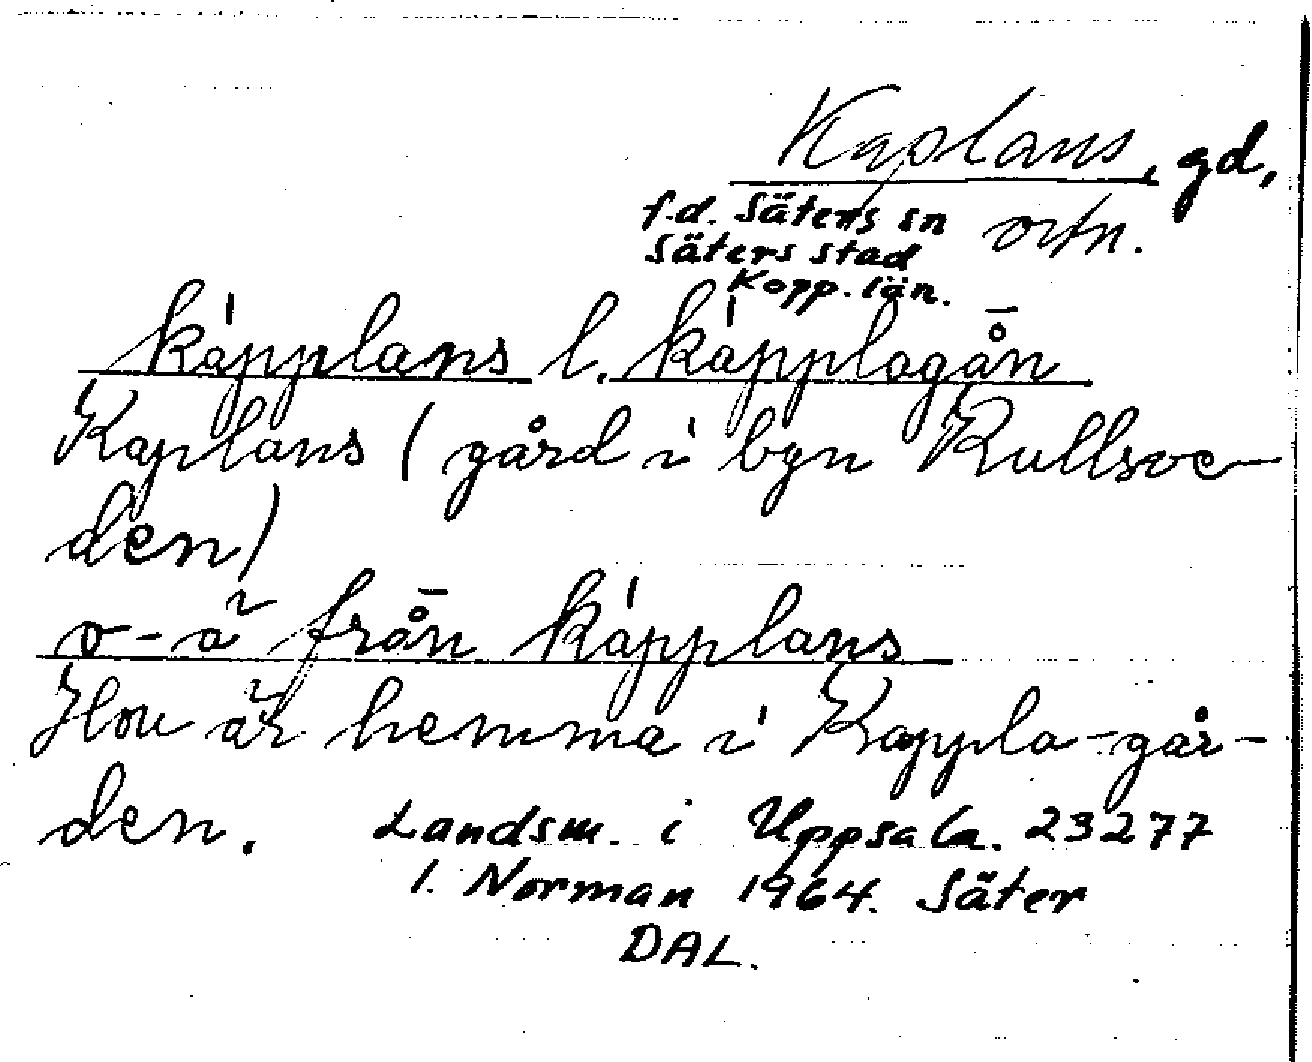 Kaplans, gd,
f.d. Säters sn ortn.
Säters stad
Kopp. län.
ká̍pplans l. ká̍pplagå̄n
Kaplans (gård i byn Kullsve-
den)
o-ä från̄ ká̍pplans
Hon är hemma i Kappla-går-
den. Landsm. i Uppsala. 23277
I. Norman 1964. Säter
DAL.